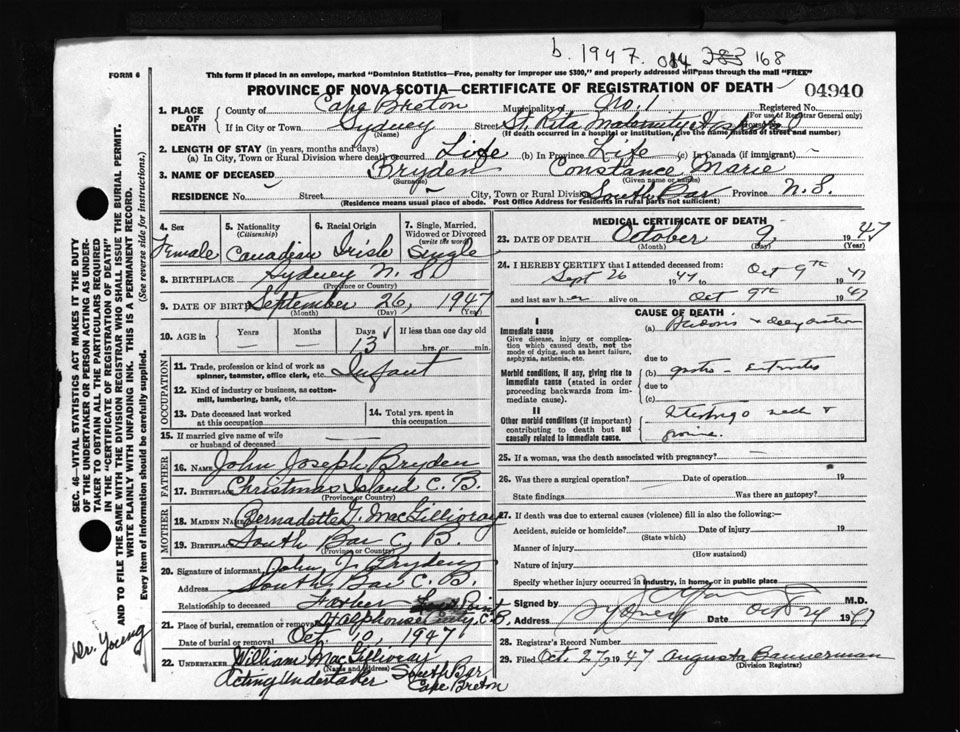 b. 1947. 014 283 168
FORM 6
This form if placed in an envelope, marked "Dominion Statistics—Free, penalty for improper use $300," and properly addressed will pass through the mail "FREE"
PROVINCE OF NOVA SCOTIA—CERTIFICATE OF REGISTRATION OF DEATH
04940
1. PLACE OF DEATH
County of Cape Breton Municipality of No. 1 Registered No.
(For use of Registrar General only)
If in City or Town Sydney Street St. Rita Maternity Hospital
(Name) (If death occurred in a hospital or institution, give the name instead of street and number)
2. LENGTH OF STAY (in years, months and days)
(a) In City, Town or Rural Division where death occurred Life (b) In Province Life (c) In Canada (if immigrant) -
3. NAME OF DECEASED Bryden Constance Marie
(Surname) (Given name or names)
RESIDENCE No. Street City, Town or Rural Division South Bar Province N.S.
(Residence means usual place of abode. Post Office Address for residents in rural parts not sufficient)
4. Sex Female
5. Nationality (Citizenship) Canadian
6. Racial Origin Irish
7. Single, Married, Widowed or Divorced (write the word) Single
8. BIRTHPLACE Sydney N.S
(Province or Country)
9. DATE OF BIRTH September 26, 1947
(Month) (Day) (Year)
10. AGE in Years Months Days 13 If less than one day old hrs. or min.
OCCUPATION
11. Trade, profession or kind of work as spinner, teamster, office clerk, etc. Infant
12. Kind of industry or business, as cotton-mill, lumbering, bank, etc.
13. Date deceased last worked at this occupation
14. Total yrs. spent in this occupation
15. If married give name of wife or husband of deceased
FATHER
16. NAME John Joseph Bryden
17. BIRTHPLACE Christmas Island C.B.
(Province or Country)
MOTHER
18. MAIDEN NAME Bernadette G. MacGillivray
19. BIRTHPLACE South Bar C.B.
(Province or Country)
20. Signature of informant John J. Bryden
Address South Bar C.B.
Relationship to deceased Father
21. Place of burial, cremation or removal St Alphonsus C.B.
Date of burial or removal Oct. 10, 1947
22. UNDERTAKER William MacGillivray South Bar
(Name and address)
Acting Undertaker Cape Breton
MEDICAL CERTIFICATE OF DEATH
23. DATE OF DEATH October 9, 1947
(Month) (Day) (Year)
24. I HEREBY CERTIFY that I attended deceased from
Sept 26 1947 Oct 9th 47
and last saw her alive on Oct 9th 1947
CAUSE OF DEATH
I
Immediate cause (a)
Give disease, injury or complication which caused death, not the mode of dying, such as heart failure, asphyxia, asthenia, etc.
due to
Morbid conditions, if any, giving rise to immediate cause (stated in order proceeding backwards from immediate cause).
(b) gastro-Enteritis
due to
(c)
II
Other morbid conditions (if important) contributing to death but not causally related to immediate cause.
Impetigo neck +
groin.
25. If a woman, was the death associated with pregnancy?
26. Was there a surgical operation? Date of operation 19
State findings Was there an autopsy?
27. If death was due to external causes (violence) fill in also the following:—
Accident, suicide or homicide? Date of injury 19
(State which)
Manner of injury
(How sustained)
Nature of injury
Specify whether injury occurred in industry, in home, or in public place
Signed by M.D.
Address Sydney Date Oct 24 1947
28. Registrar's Record Number
29. Filed Oct. 27, 1947 Augusta Bannerman
(Division Registrar)
SEC. 46—VITAL STATISTICS ACT MAKES IT THE DUTY OF THE UNDERTAKER OR PERSON ACTING AS UNDERTAKER TO OBTAIN ALL THE PARTICULARS REQUIRED IN THE "CERTIFICATE OF REGISTRATION OF DEATH" AND TO FILE THE SAME WITH THE DIVISION REGISTRAR WHO SHALL ISSUE THE BURIAL PERMIT.
WRITE PLAINLY WITH UNFADING INK. THIS IS A PERMANENT RECORD.
Every item of information should be carefully supplied. (See reverse side for instructions.)
Dr. Young